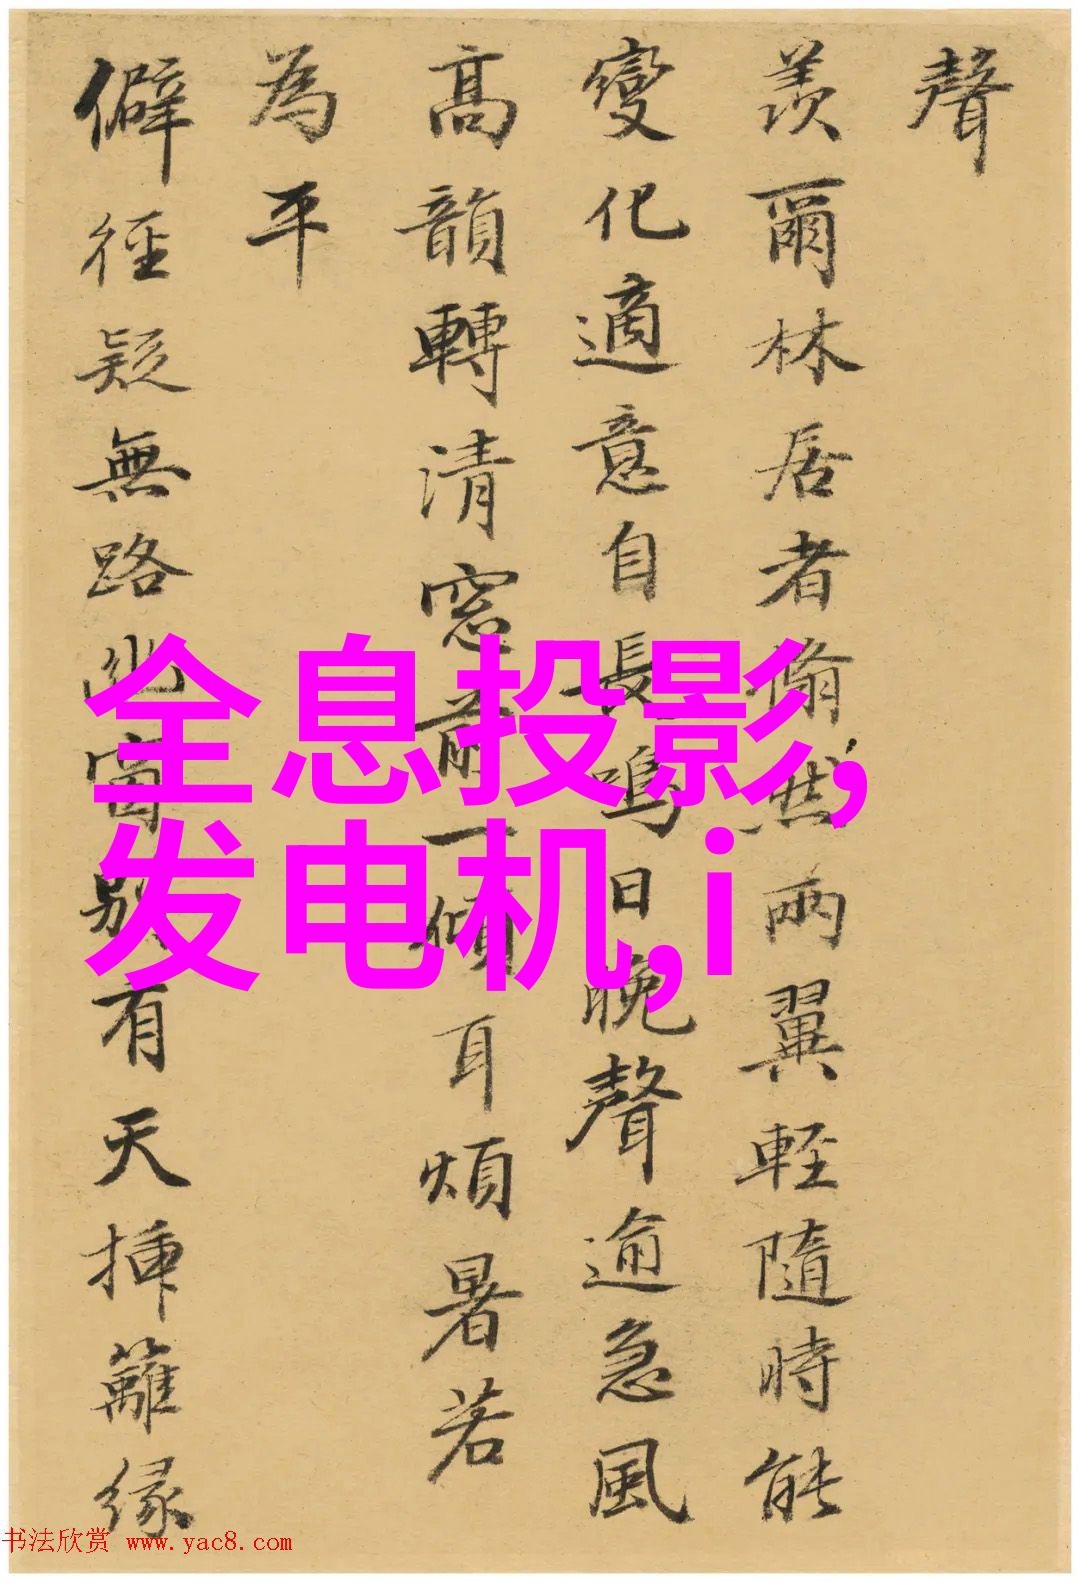 聲
羨爾林居者翛然兩翼輕隨時能
變化適意自長鳴日晚聲逾急風
高韻轉清窓前一傾耳煩暑若
為平
僻徑疑無路幽窗別有天揷籬緣
全息投影,
发电机,i
书法欣赏 www.yac8.com